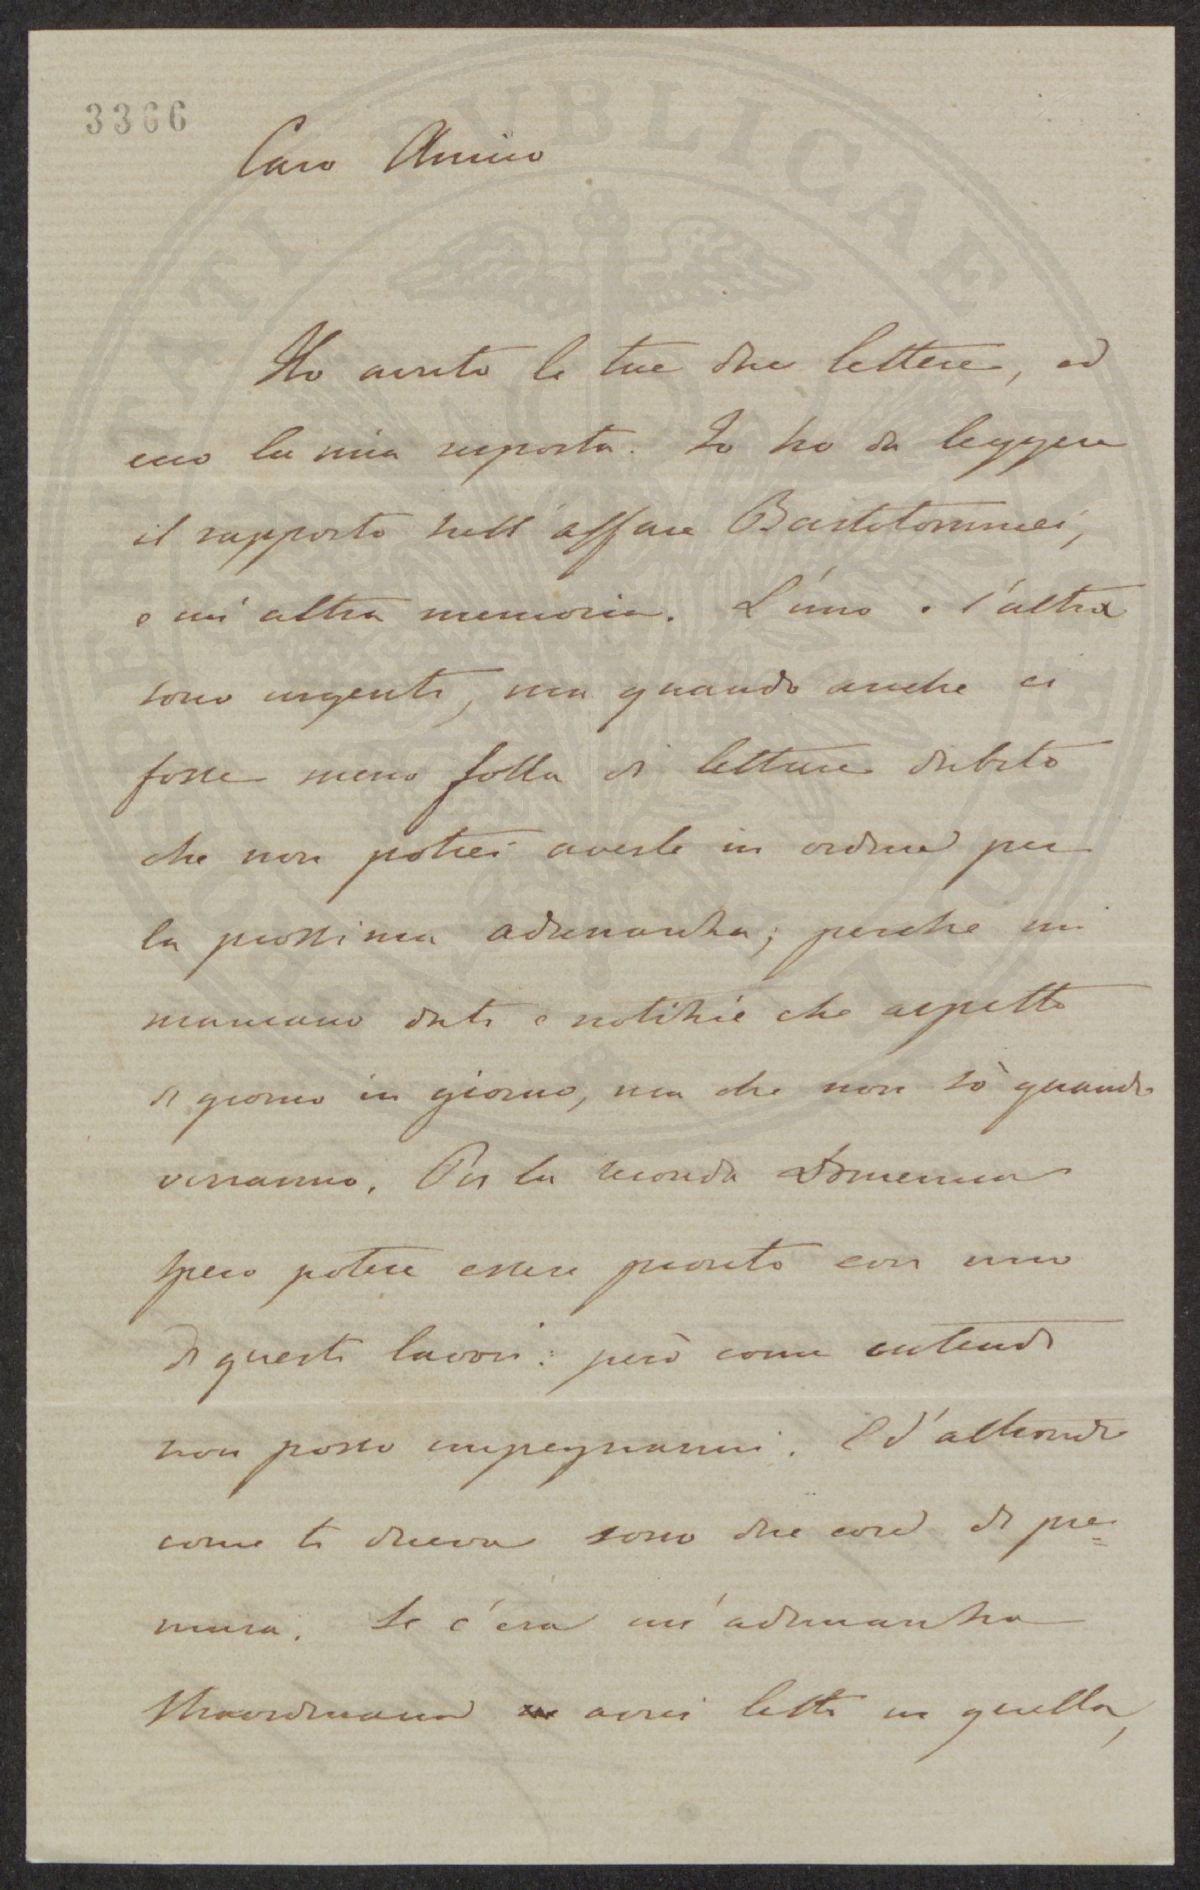 3366
Caro Amico
Ho avuto le tue due lettere, ed
ecco la mia risposta. Io ho da leggere
il rapporto sull'affare Bartolommei,
e un'altra memoria. L'uno e l'altra
sono urgenti, ma quando anche ci
fosse meno folla di letture dubito
che non potrei averle in ordine per
la prossima adunanza; perche mi
mancano dati e notizie che aspetto
di giorno in giorno, ma che non sò quando
verranno. Per la seconda Domenica
spero potere essere pronto con uno
di questi lavori: però come intendi
non posso impegnarmi. E d'altronde
come ti diceva sono due cose di pre=
mura. Se c'era un'adunanza
straordinaria avrei letto in quella,
PUBLICAE